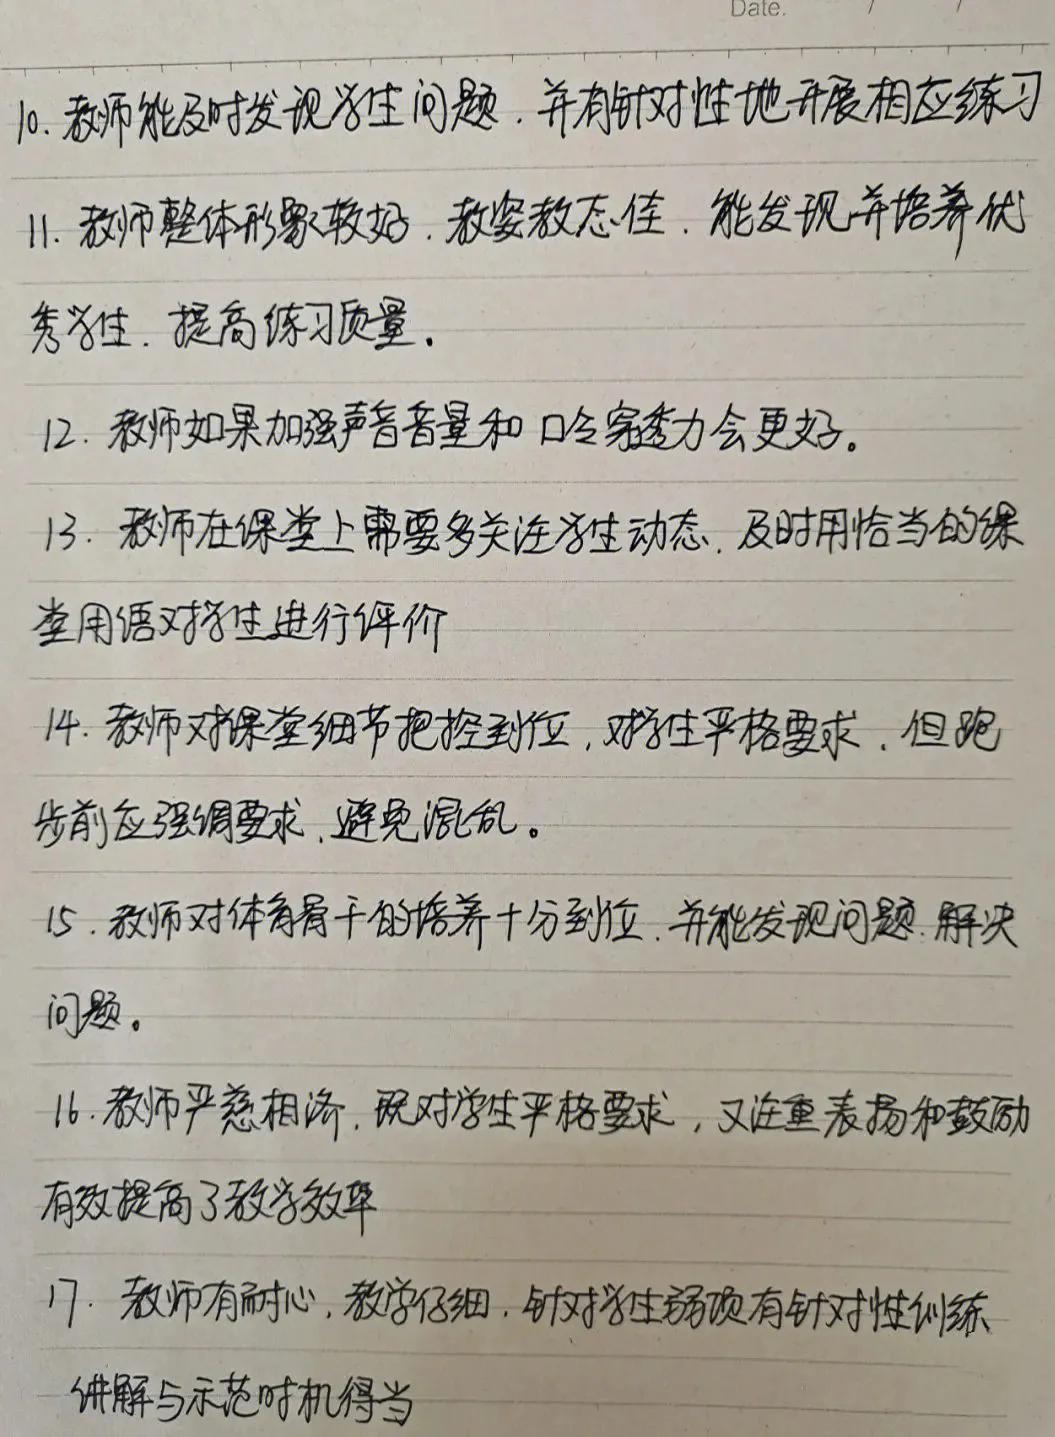 Date. / /
10. 教师能及时发现学生问题，并有针对性地开展相应练习
11. 教师整体形象较好，教姿教态佳，能发现并培养优
秀学生，提高练习质量。
12. 教师如果加强声音音量和口令穿透力会更好。
13. 教师在课堂上需要多关注学生动态，及时用恰当的课
堂用语对学生进行评价
14. 教师对课堂细节把控到位，对学生严格要求，但跑
步前应强调要求，避免混乱。
15. 教师对体育骨干的培养十分到位，并能发现问题，解决
问题。
16. 教师严慈相济，既对学生严格要求，又注重表扬和鼓励
有效提高了教学效率
17. 教师有耐心，教学仔细，针对学生弱项有针对性训练
讲解与示范时机得当